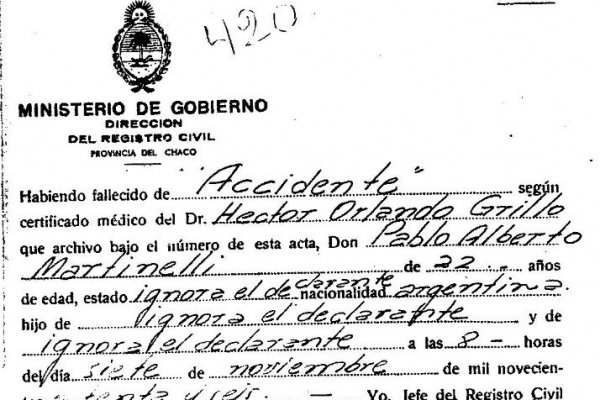 420
MINISTERIO DE GOBIERNO
DIRECCION
DEL REGISTRO CIVIL
PROVINCIA DEL CHACO
Habiendo fallecido de "Accidente" según
certificado médico del Dr. Hector Orlando Grillo
que archivo bajo el número de esta acta, Don Pablo Alberto
Martinelli de 22.- años
de edad, estado ignora el declarante nacionalidad argentina.
hijo de ignora el declarante y de
ignora el declarante a las 8- horas
del día siete de noviembre de mil novecien-
y seis.— Yo, Jefe del Registro Civil